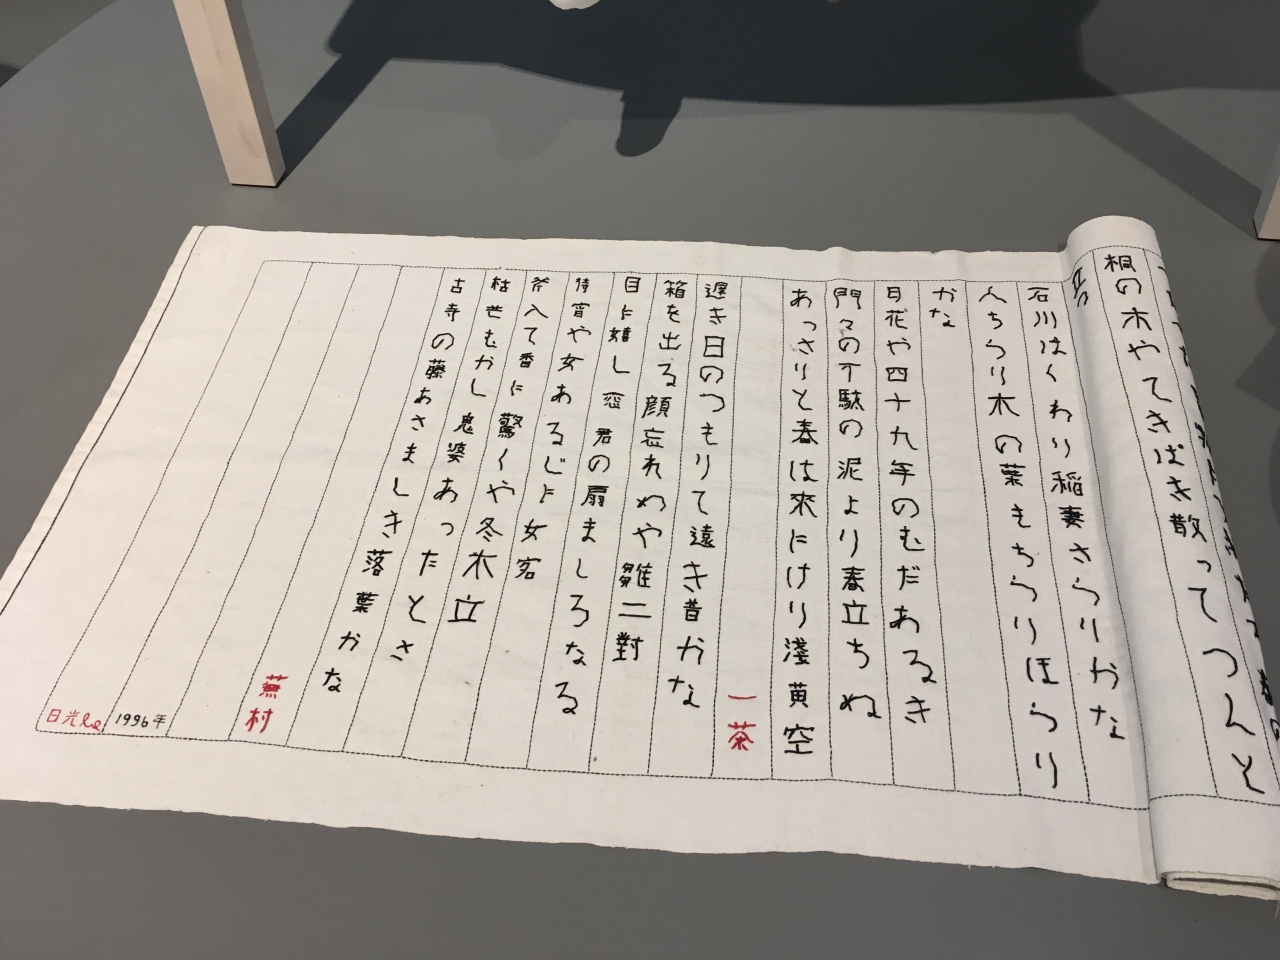 桐の木やてきぱき散ってつんと
立つ
石川はくわり稲妻さらりかな
人ちらり木の葉もちらりほらり
かな
月花や四十九年のむだあるき
門々の下駄の泥より春立ちぬ
あっさりと春は來にけり淺黄空
一茶
遅き日のつもりて遠き昔かな
箱を出る顔忘れめや雛二對
目に嬉し恋君の扇ましろなる
待宵や女あるじに女客
斧入て香に驚くや冬木立
枯芒むかし鬼婆あったとさ
古寺の藤あさましき落葉かな
蕪村
1996年
日光